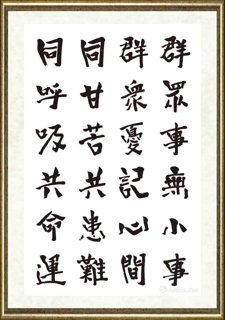 群眾事無小事
群衆憂記心間
同甘苦共患難
同呼吸共命運